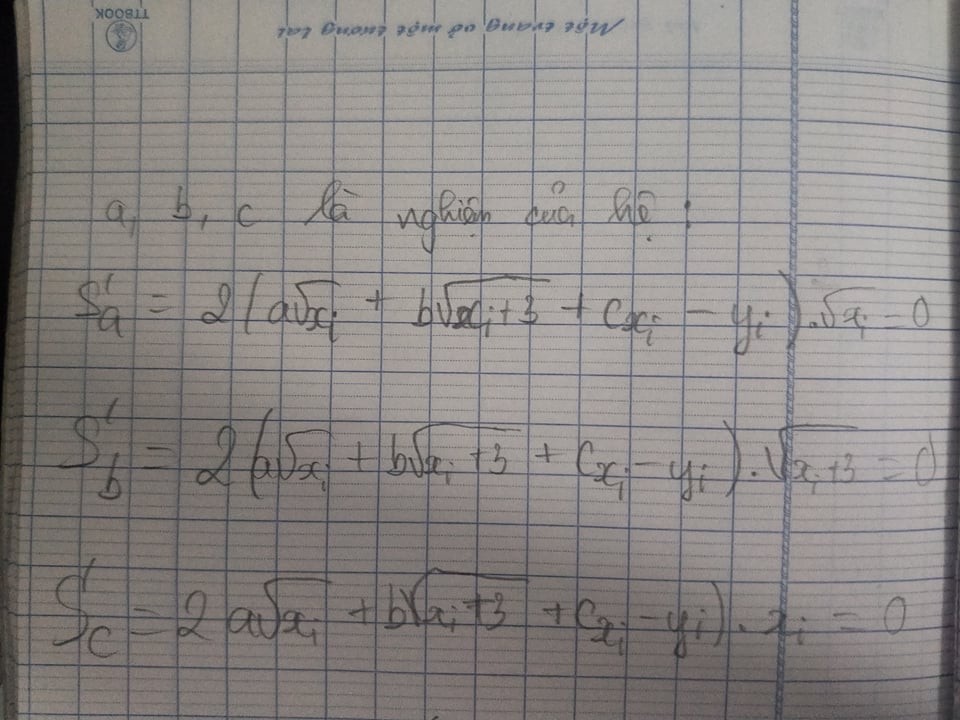 TTBOOK
Một trang vở một tương lai
a, b, c là nghiệm của hệ :
S'a = 2(a√xi + b√xi+3 + cxi - yi).√xi = 0
S'b = 2(a√xi + b√xi+3 + cxi - yi).√xi+3 = 0
S'c = 2 a√xi + b√xi+3 + cxi - yi).xi = 0